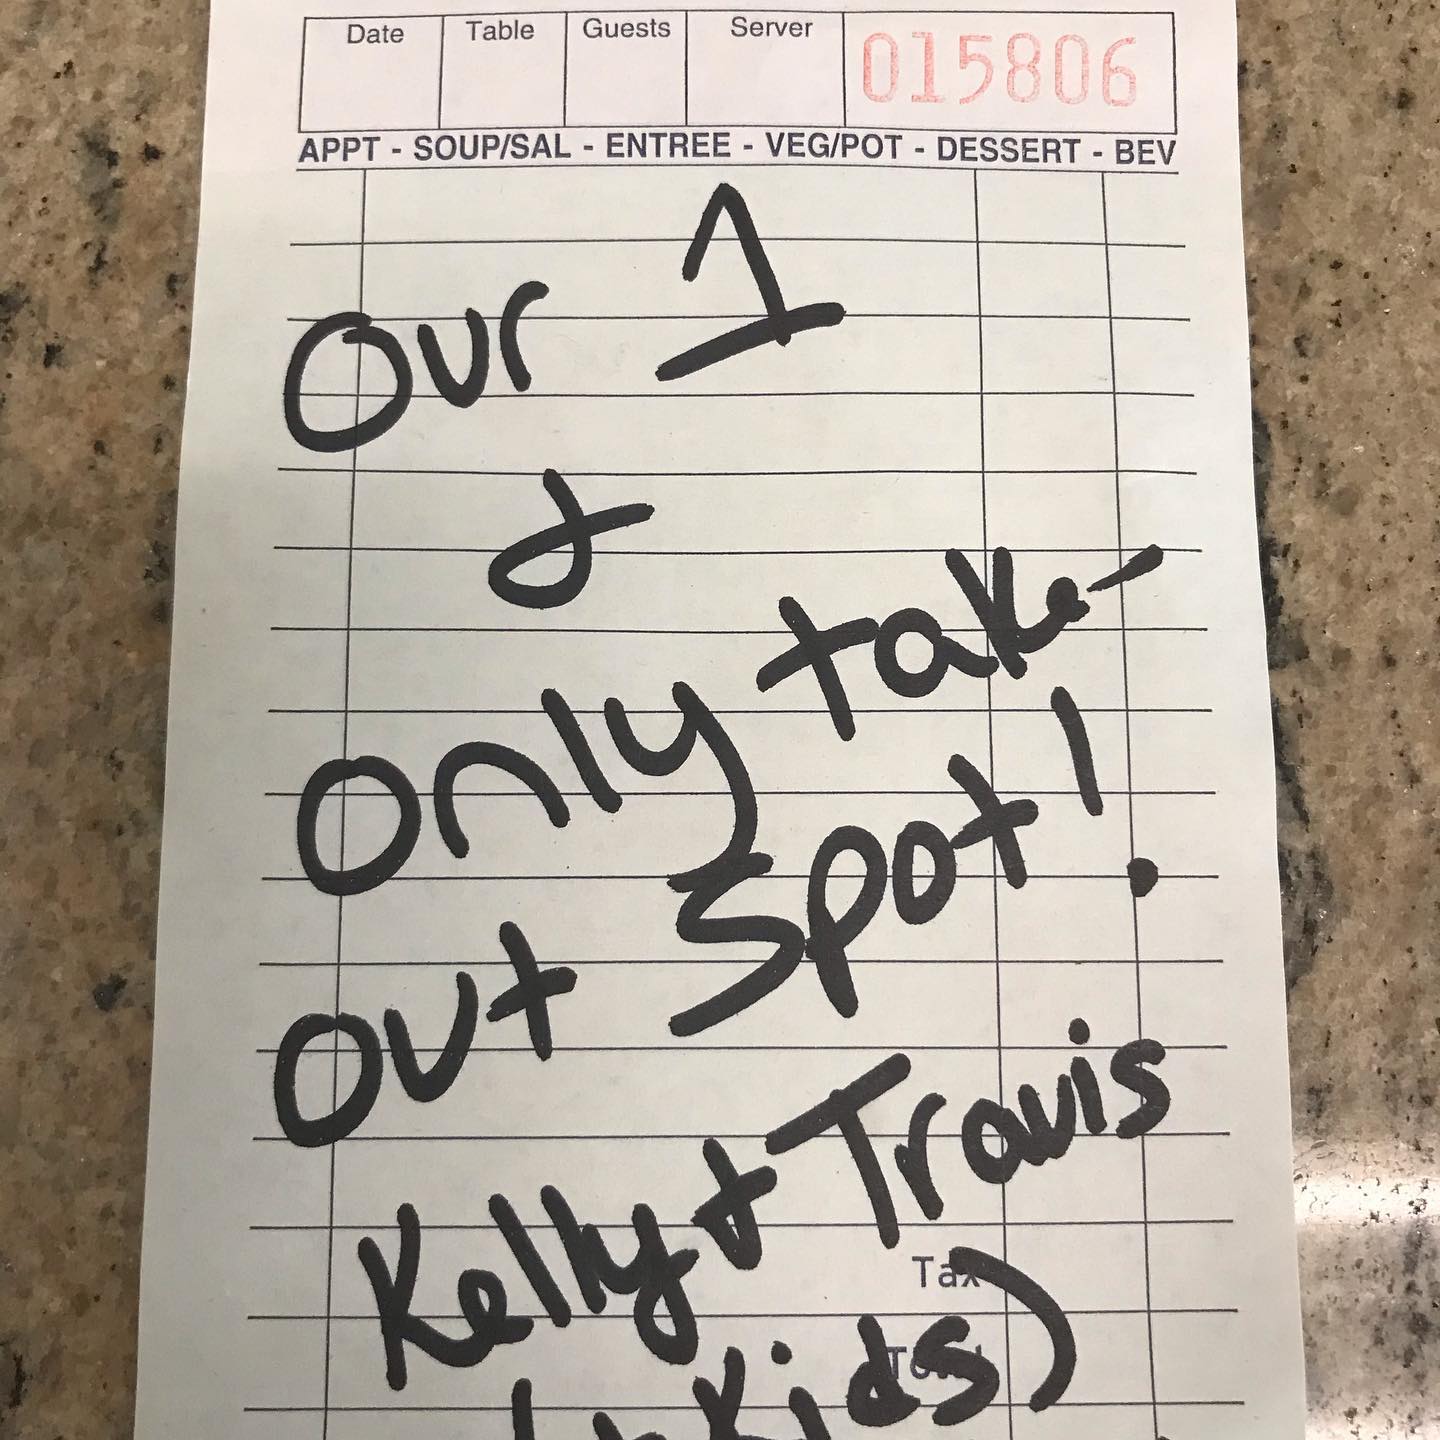 Date Table Guests Server 015806
APPT - SOUP/SAL - ENTREE - VEG/POT - DESSERT - BEV
Our 1
&
Only take-
out spot!
Kelly & Travis
Tax
Kids)
Total